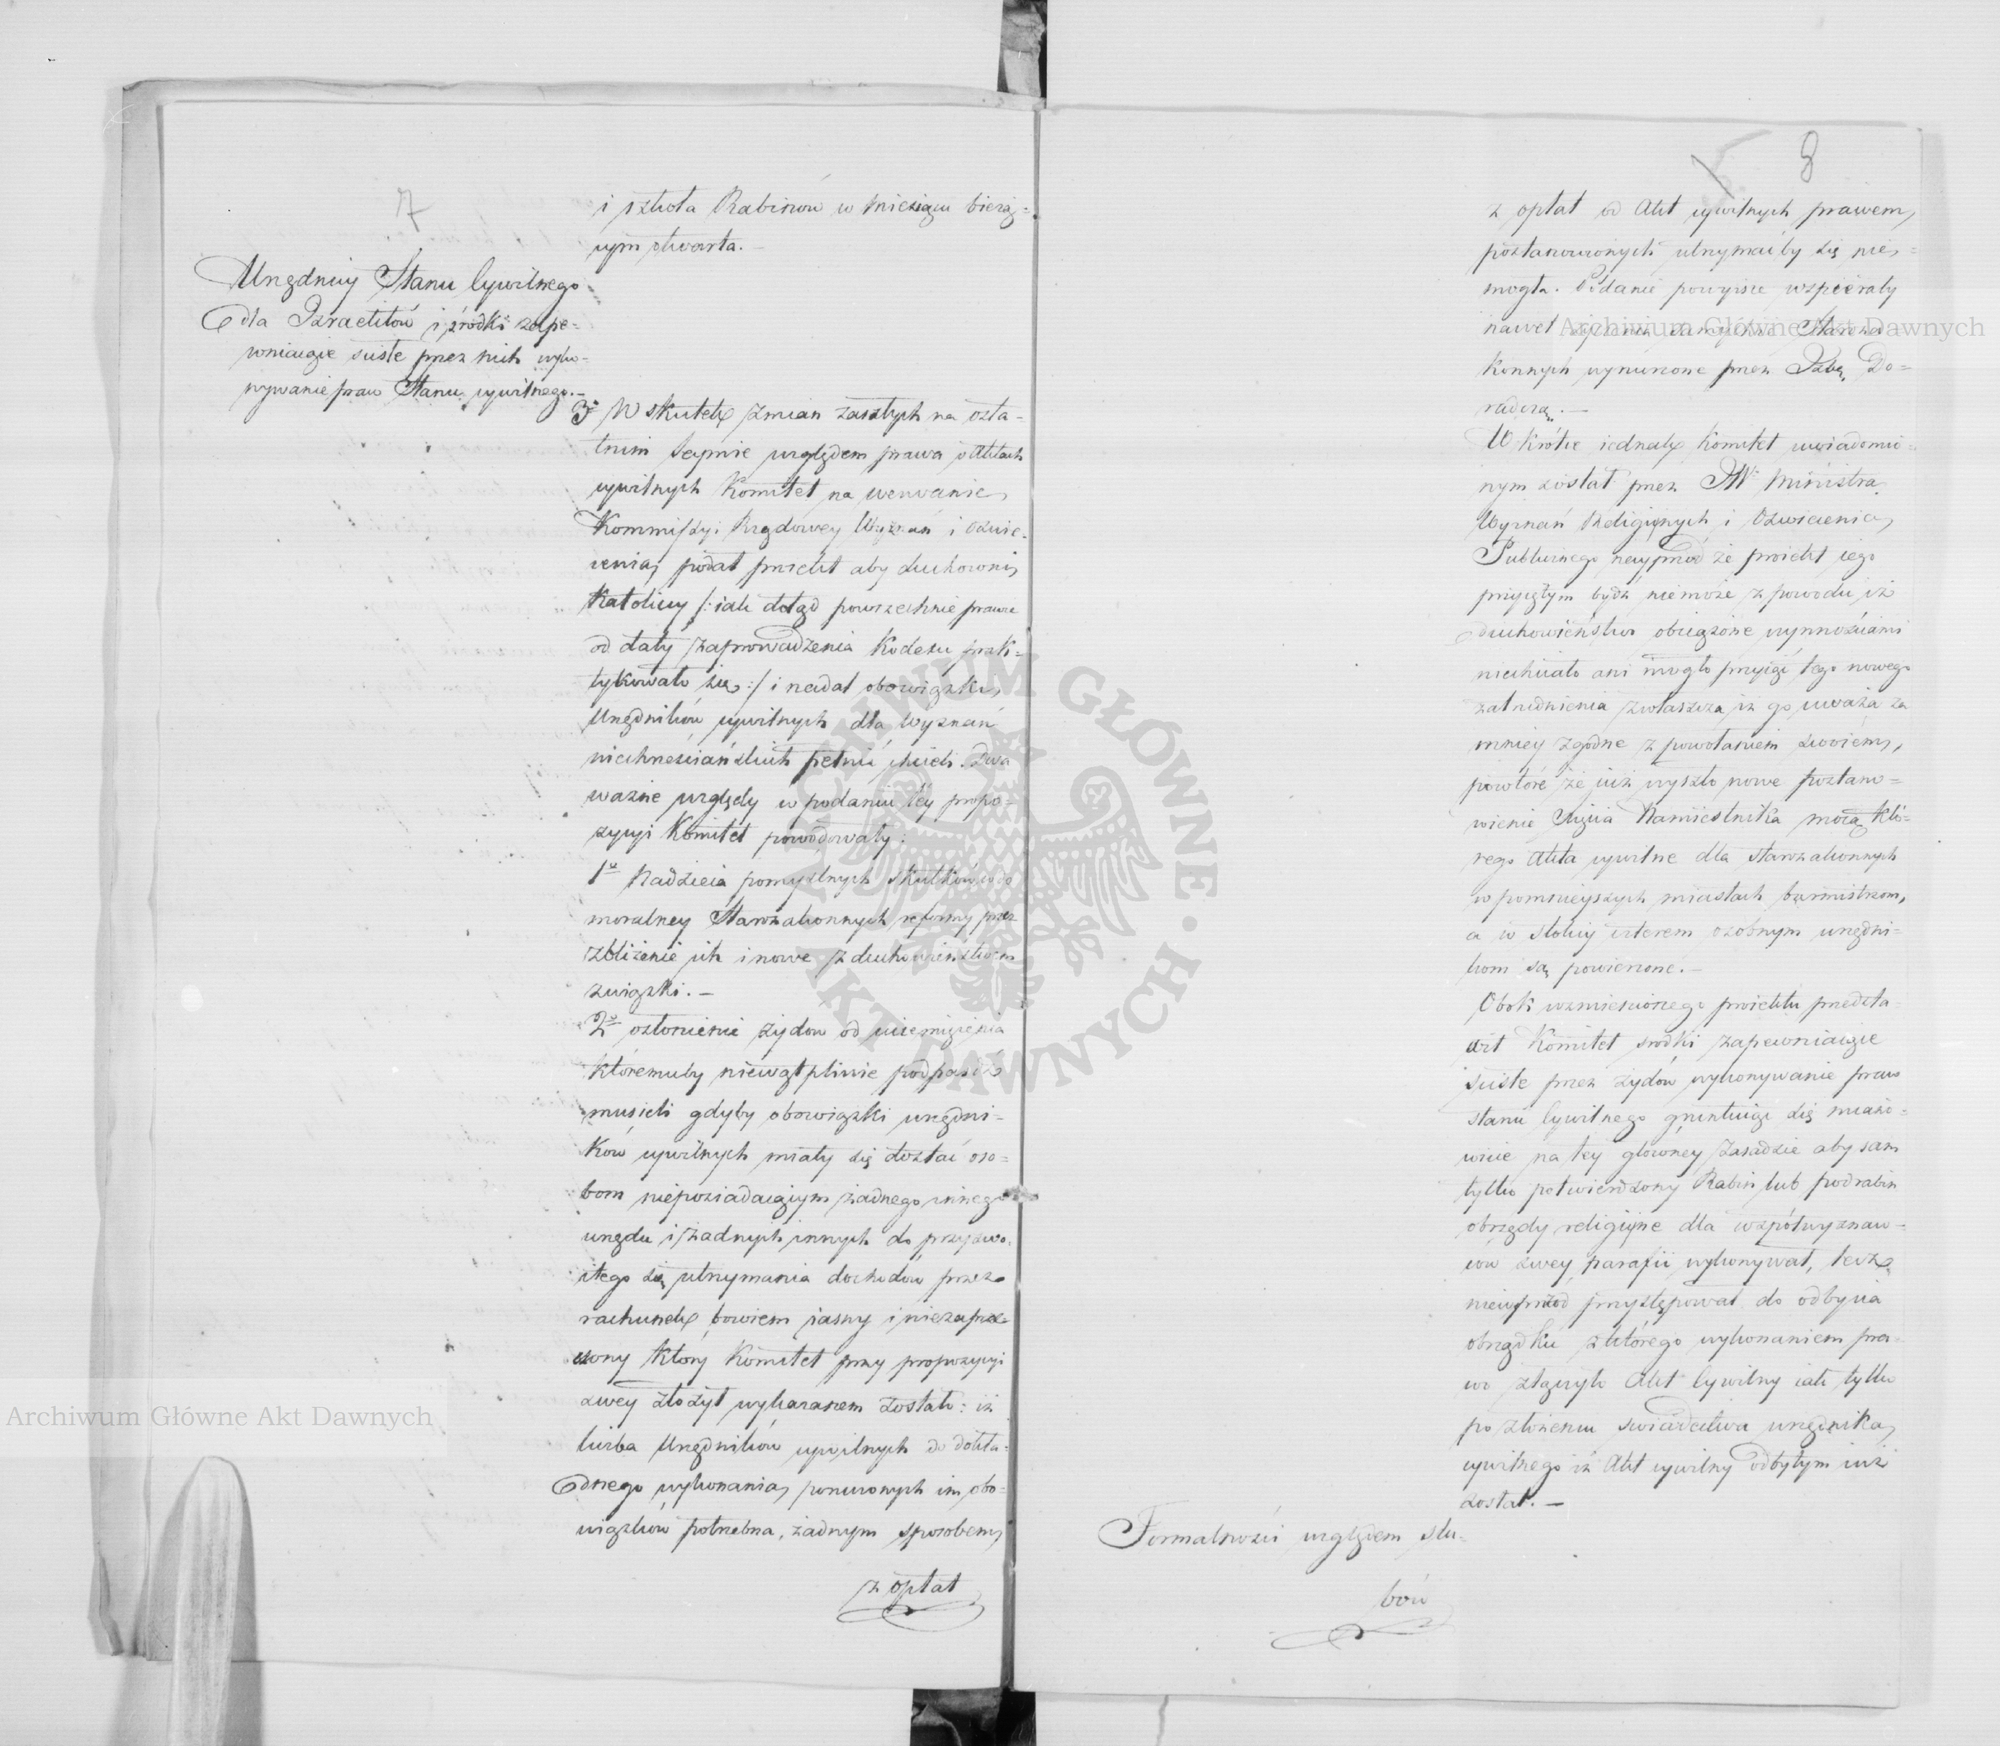 7
i szkoła Rabinów w miesiącu bieżą-
cym otwarta. —
Urzędnicy Stanu Cywilnego
dla Izraelitów i środki zape-
wniaiące ściśłe przez nich wyko-
nywanie praw Stanu cywilnego. —
3. W skutek zmian zaszłych na osta-
tnim Seymie względem prawa o Aktach
cywilnych Komitet na wezwanie
Kommissyi Rządowey Wyznań i Oświe-
cenia, podał proiekt aby duchowni
Katoliccy /: iak dotąd powszechnie prawie
od daty zaprowadzenia Kodexu prak-
tykowało się :/ i nadal obowiązki
Urzędników cywilnych dla Wyznań
niechrześciańskich pełnić chcieli. Dwa
ważne względy w podaniu tey propo-
zycyi Komitet powodowały:
1º Nadzieia pomyślnych skutków co do
moralney Starozakonnych reformy przez
zbliżenie ich i nowe z duchowieństwem
związki. —
2º osłonienie żydów od uciemiężenia
któremuby niewątpliwie podpaść
musieli gdyby obowiązki urzędni-
ków cywilnych miały się dostać oso-
bom nieposiadaiącym żadnego innego
urzędu i żadnych innych do przyzwo-
itego się utrzymania dochodów przez
rachunek bowiem iasny i niezaprze-
czony który Komitet przy propozycyi
swey złożył wykazanem zostało: iż
liczba Urzędników cywilnych do dokła-
dnego wykonania poruczonych im obo-
wiązków potrzebna, żadnym sposobem
z opłat
8
z opłat od Akt cywilnych prawem
postanowionych utrzymaćby się nie-
mogła. Podanie powyższe wspierały
nawet Starozakonnych wynurzone przez Izbę Do-
radczą. —
W krótce iednak Komitet uwiadomio-
nym został przez JW. Ministra
Wyznań Religiynych i Oświecenia
Publicznego nayprzód że proiekt iego
przyiętym bydź niemoże z powodu iż
duchowieństwo obciążone czynnościami
niechciało ani mogło przyiąć tego nowego
zatrudnienia zwłaszcza iż go uważa za
mniey zgodne z powołaniem swoiem,
powtóre że iuż wyszło nowe postano-
wienie Xięcia Namiestnika mocą któ-
rego Akta cywilne dla starozakonnych
w pomnieyszych miastach burmistrzom,
a w stolicy czterem osobnym urzędni-
kom są powierzone. —
Obok wzmienionego proiektu przedsta-
wił Komitet srodki zapewniaiące
ściśłe przez żydów wykonywanie praw
stanu Cywilnego gruntuiąc się miano-
wicie na tey główney zasadzie aby sam
tylko potwierdzony Rabin lub podrabin
obrzędy religiyne dla współwyznaw-
ców swey parafii wykonywał, lecz
nieuprzód przystępował do odbycia
obrządku z którego wykonaniem pra-
wo złączyło Akt Cywilny iak tylko
po złożeniu swiadectwa urzędnika
cywilnego iż Akt cywilny odbytym iuż
został. —
Formalności względem slu-
bów
Archiwum Główne Akt Dawnych
Archiwum Główne Akt Dawnych
ARCHIWUM GŁÓWNE · AKT DAWNYCH ·